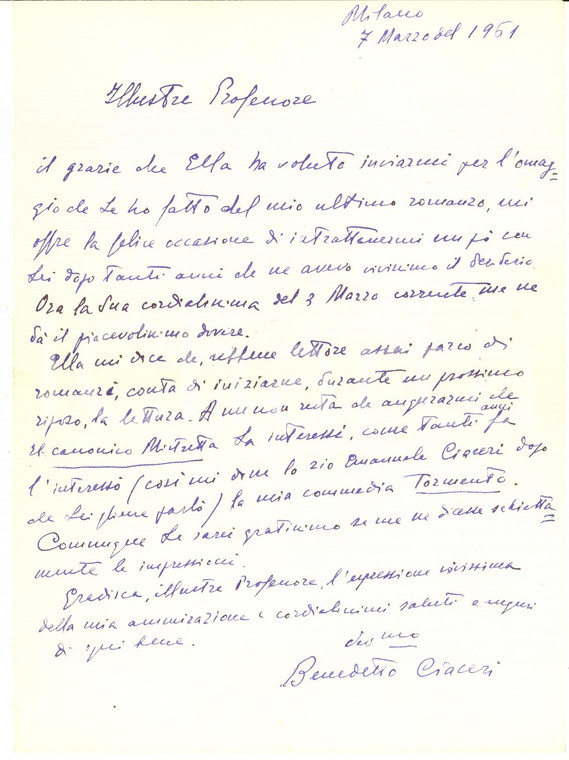 Milano
7 Marzo del 1961
Illustre Professore
il grazie che Ella ha voluto inviarmi per l'omag=
gio che Le ho fatto del mio ultimo romanzo, mi
offre la felice occasione di intrattenermi un pò con
Lei dopo tanti anni che ne avevo vivissimo il desiderio.
Ora la Sua cordialissima del 3 Marzo corrente, me ne
dà il piacevolissimo dovere.
Ella mi dice che, sebbene lettore assai parco di
romanzi, conta di iniziarne, durante un prossimo
riposo, la lettura. A me non resta che augurarmi che
il canonico Mistretta La interessi, come tanti anni fa
l'interessò (così mi disse lo zio Emanuele Ciaceri dopo
che Lei gliene parlò) la mia commedia Tormento.
Comunque Le sarei gratissimo se me ne diesse schietta=
mente le impressioni.
Gradisca, illustre Professore, l'espressione vivissima
della mia ammirazione e cordialissimi saluti e auguri
di ogni bene.
dev mo
Benedetto Ciaceri